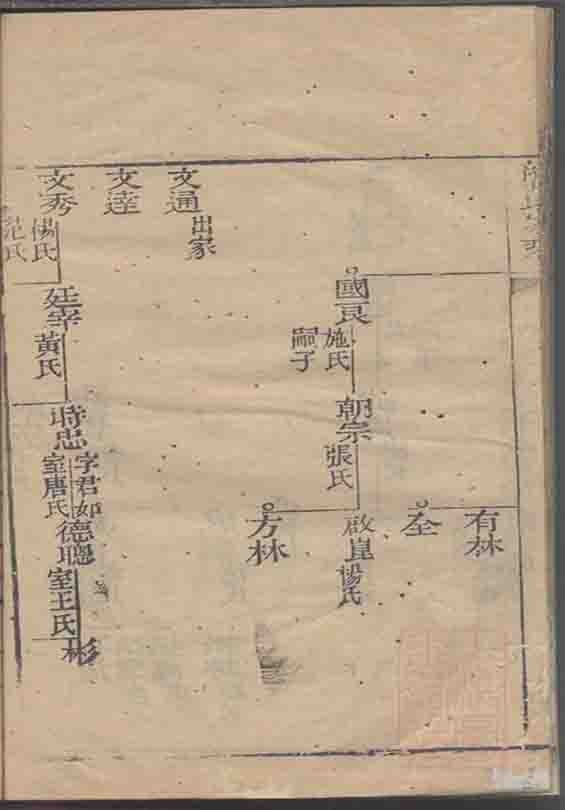 有林
全
國良
施氏
嗣子
朝宗
張氏
啟崑
楊氏
方林
文通
出家
文達
文秀
楊氏
范氏
廷宰
黃氏
時忠
字君如
室唐氏
德聰
室王氏
彬